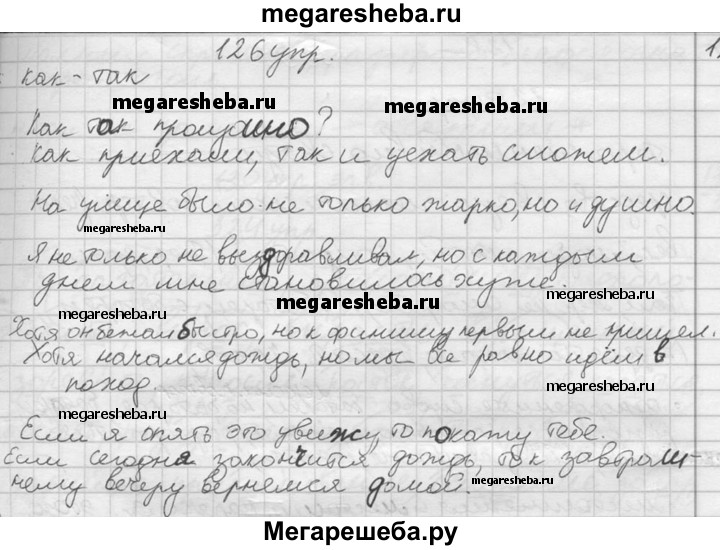 megaresheba.ru
126 упр.
как - так
megaresheba.ru
megaresheba.ru
Как так произошло?
Как приехали, так и уехать сможем.
На улице было не только жарко, но и душно.
megaresheba.ru
Я не только не выздоравливал, но с каждым
днем мне становилось хуже.
megaresheba.ru
megaresheba.ru
Хотя он бежал быстро, но к финишу первым не пришел.
Хотя начался дождь, но мы все равно идём в
поход.
megaresheba.ru
Если я опять это увижу, то покажу тебе.
Если сегодня закончится дождь, то к завтраш-
нему вечеру вернемся домой.
megaresheba.ru
Мегарешеба.ру